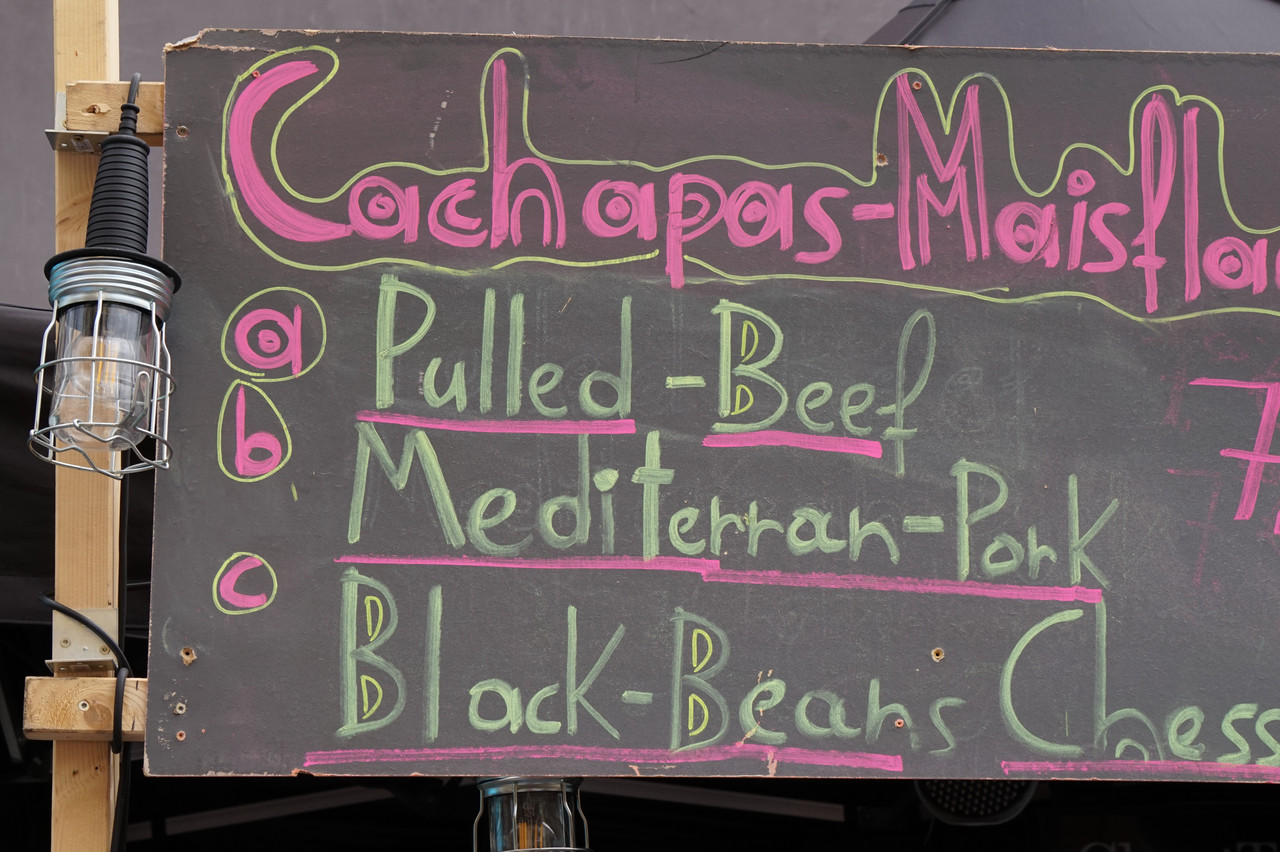 Cachapas-Maisfla
a Pulled-Beef
b Mediterran-Pork 7,
c Black-Beans Chess